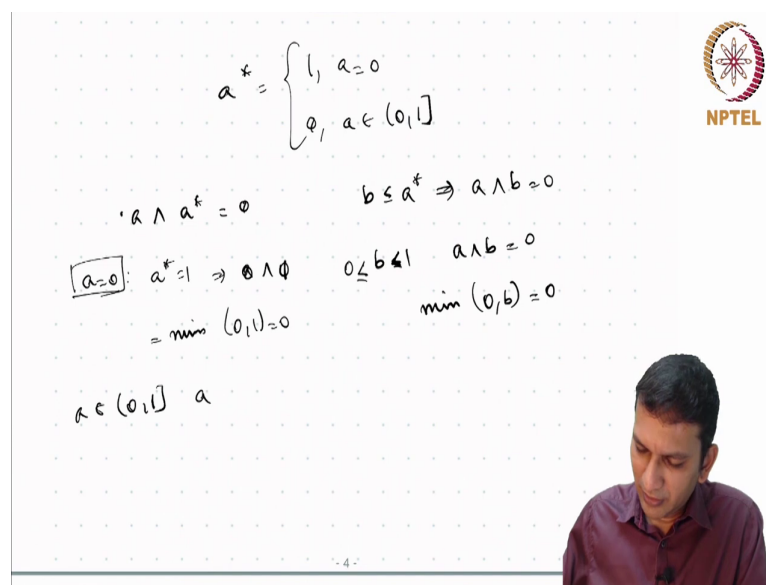 a* = { 1, a=0
0, a ∈ (0,1]
a ∧ a* = 0
b ≤ a* ⇒ a ∧ b = 0
a=0 : a* = 1 ⇒ 0 ∧ 1
= min (0,1) = 0
0 ≤ b ≤ 1 a ∧ b = 0
min (0,b) = 0
a ∈ (0,1] a
- 4 -
NPTEL